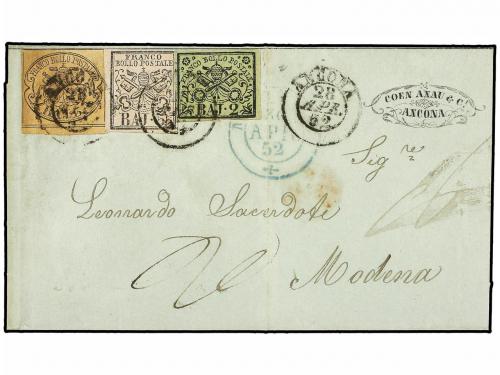 FRANCO BOLLO POSTALE
FRANCO
BOLLO POSTALE
BAJ.
FRANCO BOLLO POSTALE
BAJ. 2
ANCONA
28
APR.
52
COEN ANAU & C.
ANCONA
API
52
Sig.re
Leonardo Sacerdote
Modena